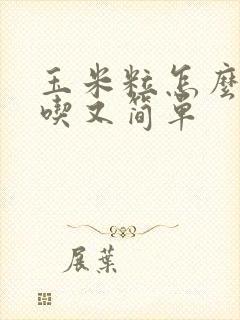 玉米粒怎麼
喫又简单
展葉